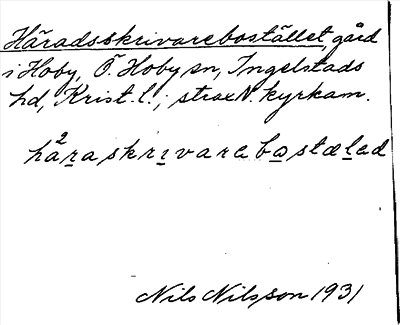 Häradsskrivarebostället, gård
i Hoby, Ö. Hoby sn, Ingelstads
hd, Krist. l.; strax N. kyrkam.
hä²raskrivarebostæled
Nils Nilsson 1931